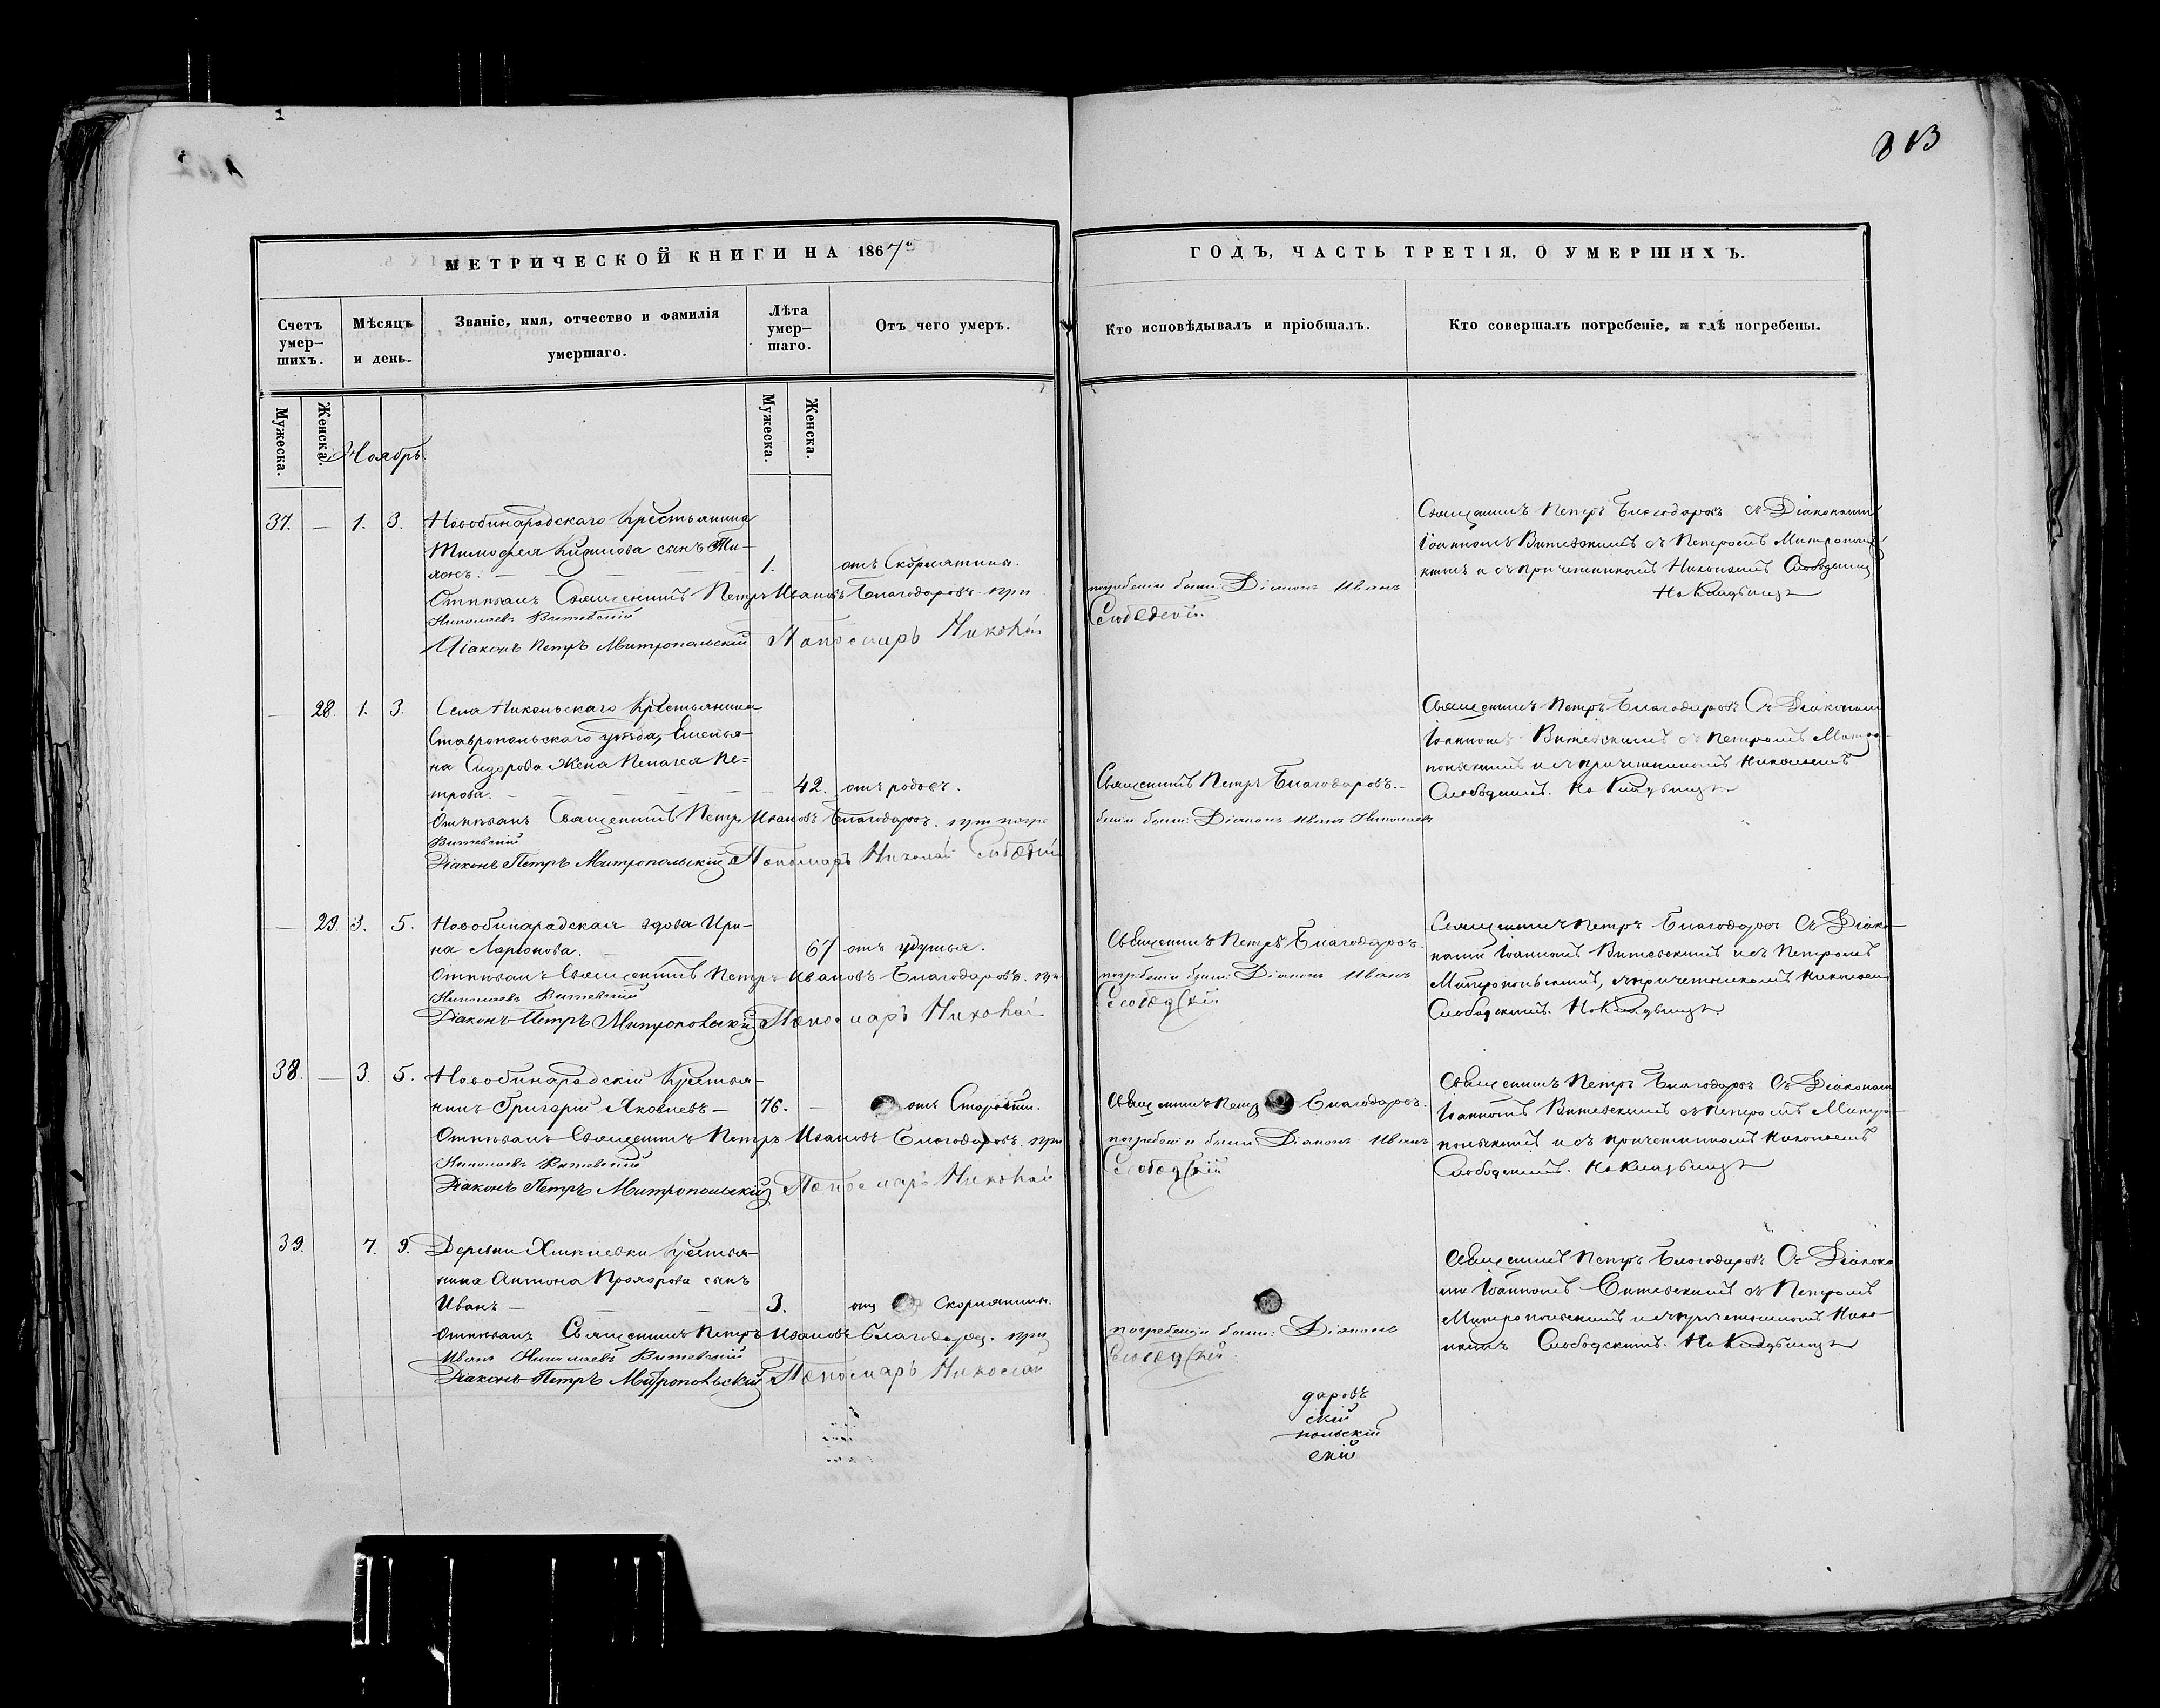 813
МЕТРИЧЕСКОЙ КНИГИ НА 1867й
ГОДЪ, ЧАСТЬ ТРЕТІЯ, О УМЕРШИХЪ.
Счетъ умер-шихъ.
Мѣсяцъ и день.
Званіе, имя, отчество и фамилія умершаго.
Лѣта умер-шаго.
Отъ чего умеръ.
Кто исповѣдывалъ и пріобщалъ.
Кто совершалъ погребеніе, и гдѣ погребены.
Мужеска.
Женска.
Мужеска.
Женска.
Ноябрь
37. — 1. 3. Новобинарадскаго Крестьянина
Тимофея сынъ Ти-
хонъ. — 1. отъ Скорлатины.
Отпѣвалъ Священникъ Петръ Ивановъ Благодаровъ. при погребеніи были: Діаконъ Иванъ
Николаевъ Витевскій
Діаконъ Петръ Митропольскій Пономарь Николай Слободскій
Священникъ Петръ Благодаровъ съ Діакономъ
Іоанномъ Витевскимъ съ Петромъ Митрополь-
скимъ и съ причетникомъ Николаемъ Слободскимъ
На Кладбищѣ
— 28. 1. 3. Села Никольскаго Крестьянина
Ставропольскаго уѣзда, Емелья-
на Сидорова Жена Пелагея Пе-
трова. — 42. отъ родовъ. Священникъ Петръ Благодаровъ. —
Отпѣвалъ Священникъ Петръ Ивановъ Благодаровъ. при погребеніи были: Діаконъ Иванъ Николаевъ
Витевскій
Діаконъ Петръ Митропольскій Пономарь Николай Слободскій
Священникъ Петръ Благодаровъ Съ Діакономъ
Іоанномъ Витевскимъ съ Петромъ Митро-
польскимъ и съ причетникомъ Николаемъ
Слободскимъ. На Кладбищѣ
— 29. 3. 5. Новобинарадская вдова Ири-
на Ларіонова. — 67 отъ удушья. Священникъ Петръ Благодаровъ.
Отпѣвалъ Священникъ Петръ Ивановъ Благодаровъ. при погребеніи были: Діаконъ Иванъ
Николаевъ Витевскій
Діаконъ Петръ Митропольскій Пономарь Николай Слободскій
Священникъ Петръ Благодаровъ Съ Діако-
номъ Іоанномъ Витевскимъ и съ Петромъ
Митропольскимъ, съ причетникомъ Николаемъ
Слободскимъ. На Кладбищѣ
38. — 3. 5. Новобинарадскій Крестья-
нинъ Григорій Яковлевъ — 76. — отъ Старости. Священникъ Петръ Благодаровъ.
Отпѣвалъ Священникъ Петръ Ивановъ Благодаровъ. при погребеніи были: Діаконъ Иванъ
Николаевъ Витевскій
Діаконъ Петръ Митропольскій Пономарь Николай Слободскій
Священникъ Петръ Благодаровъ Съ Діакономъ
Іоанномъ Витевскимъ съ Петромъ Митро-
польскимъ и съ причетникомъ Николаемъ
Слободскимъ. На Кладбищѣ
39. 7. 9. Деревни Крестья-
нина Антона Прохорова сынъ
Иванъ — 3. отъ Скорлатины.
Отпѣвалъ Священникъ Петръ Ивановъ Благодаровъ. при погребеніи были: Діаконъ
Иванъ Николаевъ Витевскій
Діаконъ Петръ Митропольскій Пономарь Николай Слободскій.
Священникъ Петръ Благодаровъ Съ Діаконо-
мъ Іоанномъ Витевскимъ съ Петромъ
Митропольскимъ и съ причетникомъ Нико-
лаемъ Слободскимъ. На Кладбищѣ
даровъ
скій
польскій
скій